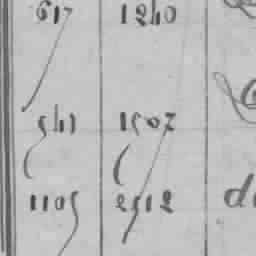 617 1240
541 1507
1105 2912
d